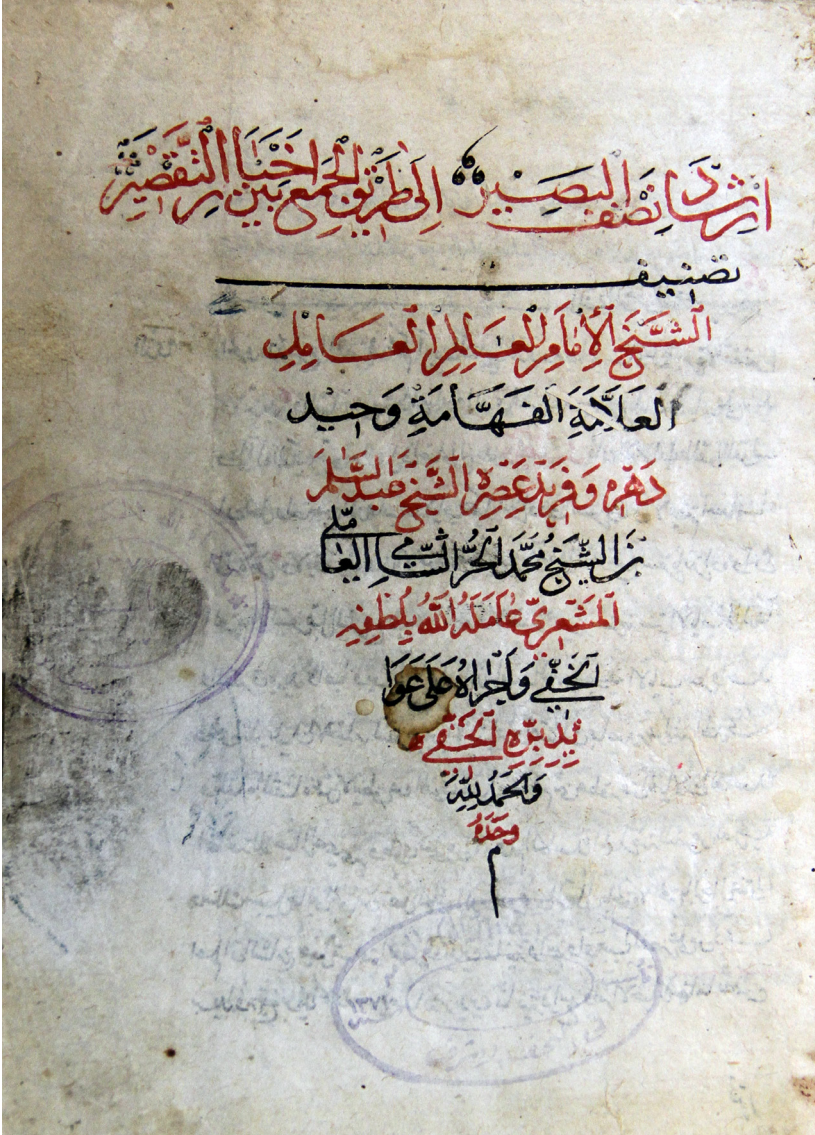 ارشاد نصف البصير الى طريق الجمع بين اخبار التقصير
تصنيف
الشَّيخ الإمام العالم العامل
العلّامة الفهّامة وحيد
دهره وفريد عصره الشيخ عبد السلم
بن الشيخ محمد الحر الشامي العاملي
المشغري عامله الله بلطفه
الخفي واجراه على عوا
يد برّه الحفي
والحمد لله
وحده
م